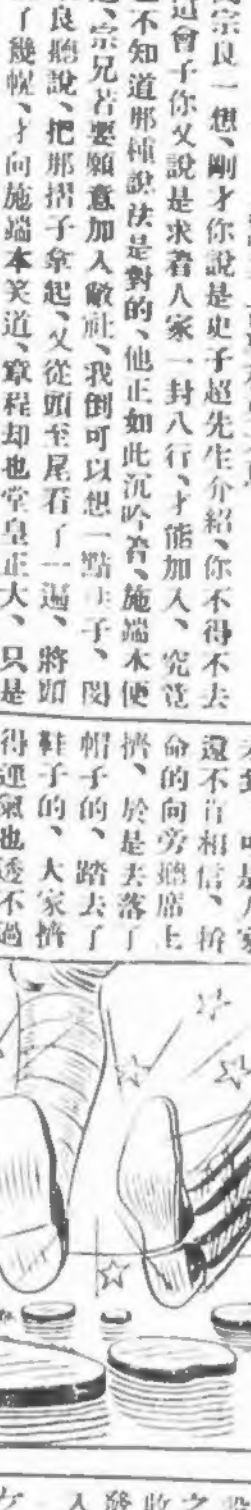 宗良一想、剛才你說是史子超先生介紹、你不得不去
過會子你又說是求着人家一封八行、才能加入、究竟
不知道那種說法是對的、他正如此沉吟着、施端本便
、宗兄若要願意加入敝社、我倒可以想一點法子、閔
良聽說、把那摺子拿起、又從頭至尾看了一遍、將如
了幾幌、才向施端本笑道、章程却也堂皇正大、只是
還不肯相信、拚
命的向旁聽席上
擠、於是去落了
帽子的、踏去了
鞋子的、大家擠
得連氣也透不過